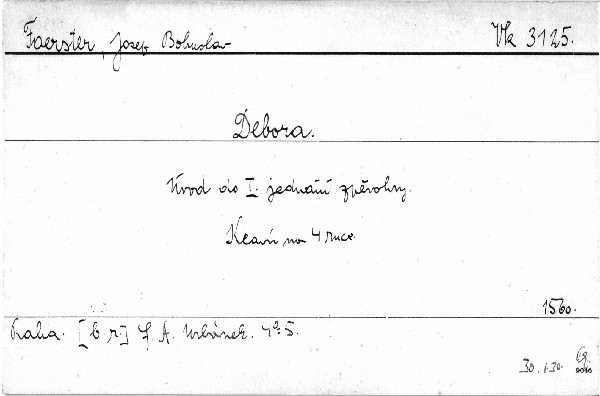 Foerster, Josef Bohuslav
Vk 3125.
Debora.
Úvod do I. jednání zpěvohry.
Klavír na 4 ruce.
1560.
Praha. [b. r.] F. A. Urbánek. 4° 5.
30.1.30.